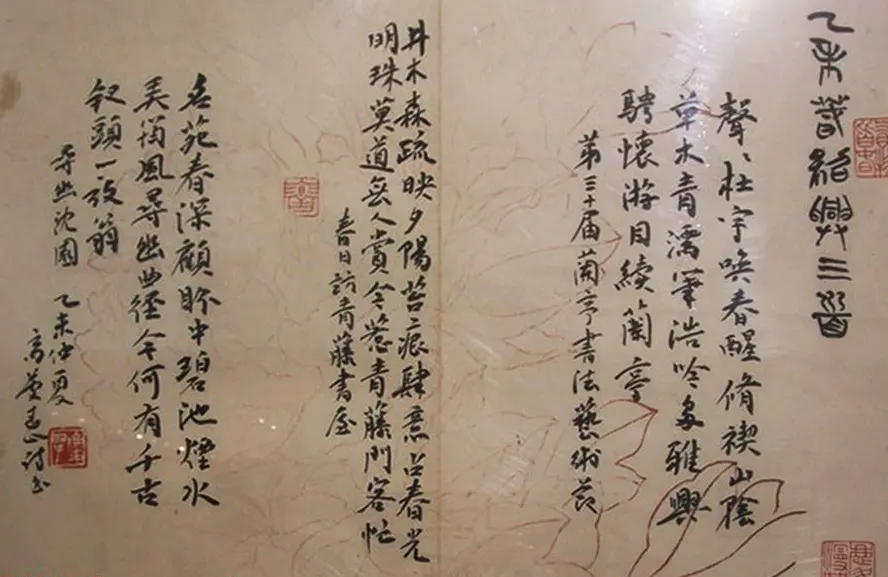 乙未春紹興三首
聲〻杜宇喚春醒脩禊山陰
草木青濡筆浩吟多雅興
騁懷游目續蘭亭
第三十届蘭亭書法藝術节
井木森疏映夕陽苔痕肆意占春光
明珠莫道无人賞今惹青藤門客忙
春日訪青藤書屋
名苑春深顧盼中碧池煙水
美筠風尋幽曲徑今何有千古
釵頭一放翁
尋幽沈園 乙未仲夏
高